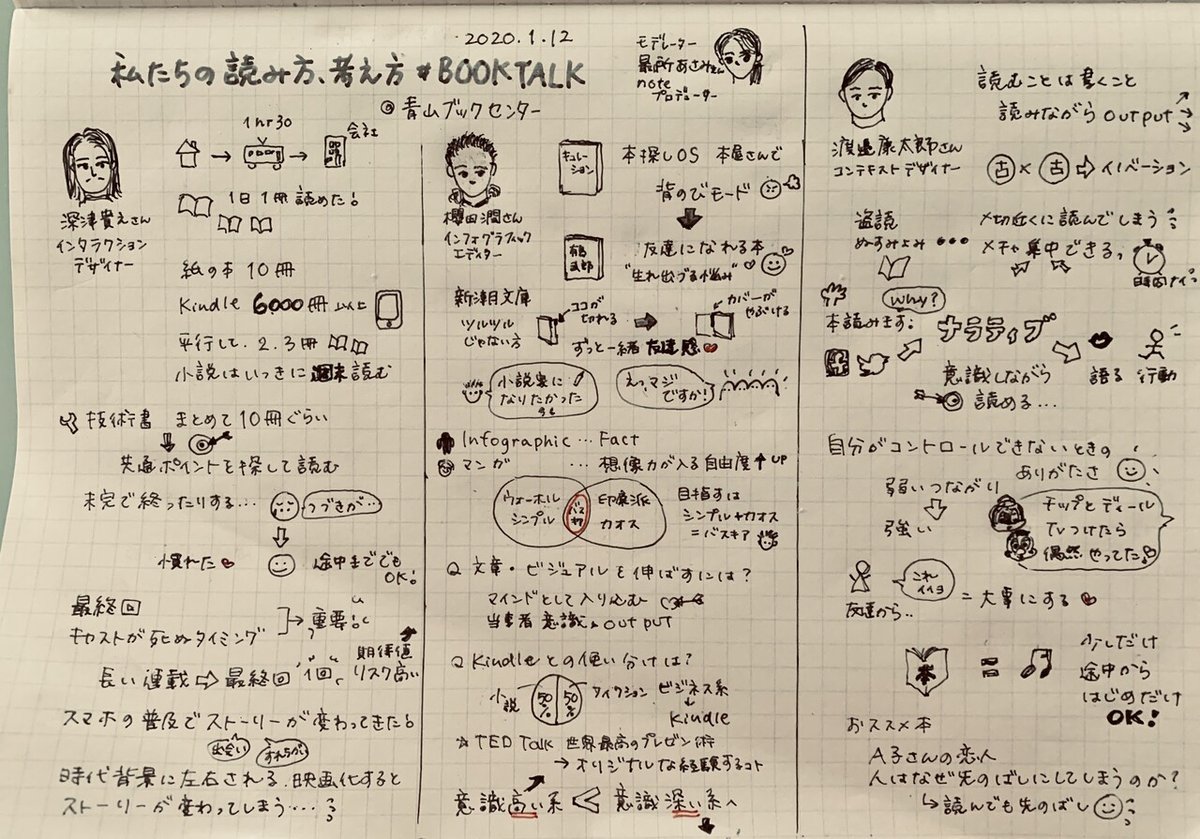 2020.1.12
私たちの読み方、考え方 #BOOKTALK
@青山ブックセンター
モデレーター
最所あさみさん
note
プロデューサー
深津貴之さん
インタラクション
デザイナー
1hr30
会社
1日1冊読めた!
紙の本 10冊
Kindle 6000冊以上
平行して、2、3冊
小説はいっきに週末読む
技術書 まとめて10冊ぐらい
共通ポイントを探して読む
未完で終ったりする…
つづきが…
慣れた
途中まででも
OK!
最終回
キャストが死ぬタイミング
重要
長い連載 ⇨ 最終回 1回
期待値
リスク高い
スマホの普及でストーリーが変わってきた!
出会い
すれちがい
時代背景に左右される、映画化すると
ストーリーが変わってしまう….
櫻田潤さん
インフォグラフィック
エディター
キュレーション
本探しOS 本屋さんで
背のびモード
友達になれる本
"生れ出づる悩み"
有島
武郎
新潮文庫
ツルツル
じゃない方
ココが
切れる
カバーが
やぶける
ずっと一緒 友達感
小説家に
なりたかった
今も
えっ、マジ
ですか!
Infographic … Fact
マンガ … 想像力が入る自由度 UP
ウォーホル
シンプル
バスキア
印象派
カオス
目指すは
シンプル+カオス
=バスキア
Q 文章・ビジュアルを伸ばすには?
マインドとして入り込む
当事者意識 & OUTPUT
Q Kindleとの使い分けは?
小説
50%
50%
ビジネス系
Kindle
☆ TED Talk 世界最高のプレゼン術
→ オリジナルな経験するコト
意識高い系 < 意識深い系へ
渡邉康太郎さん
コンテキストデザイナー
読むことは書くこと
読みながら output
古 × 古 ⇨ イノベーション
盗読
ぬすみよみ …
〆切近くに読んでしまう
メチャ集中できるっ
時間ナイっ
why?
本読みます!
ナラティブ
語る
行動
意識しながら
読める…
自分がコントロールできないときの
ありがたさ
弱いつながり
強い
チップとディール
TVつけたら
偶然やってた♪
これ
イイヨ
友達から..
= 大事にする
本 =
少しだけ
途中から
はじめだけ
OK!
おススメ本
A子さんの恋人
人はなぜ先のばしにしてしまうのか?
↳ 読んでも先のばし